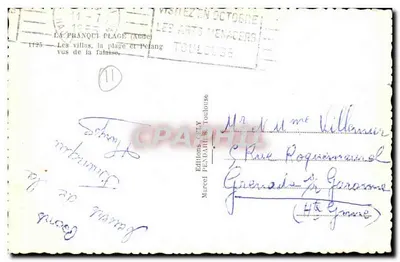 11-1
1955
VISITEZ EN OCTOBRE
LES ARTS MENAGERS
TOULOUSE
LA FRANQUI PLAGE (Aude)
1125 - Les villas, la plage et l'étang
vus de la falaise.
11
Editions
Marcel PENDARIES Toulouse
CPArama.com
Mr & Mme Villemur
5 Rue Roquemaurel
Grenade s/ Garonne
(Hte Gnne)
Bons
de la
Franqui